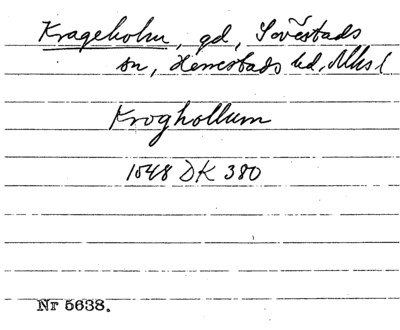 Krageholm, gd, Sövestads
sn, Herrestads hd, Mlhs l
Kroghollum
1548 DK 380
Nr 5638.